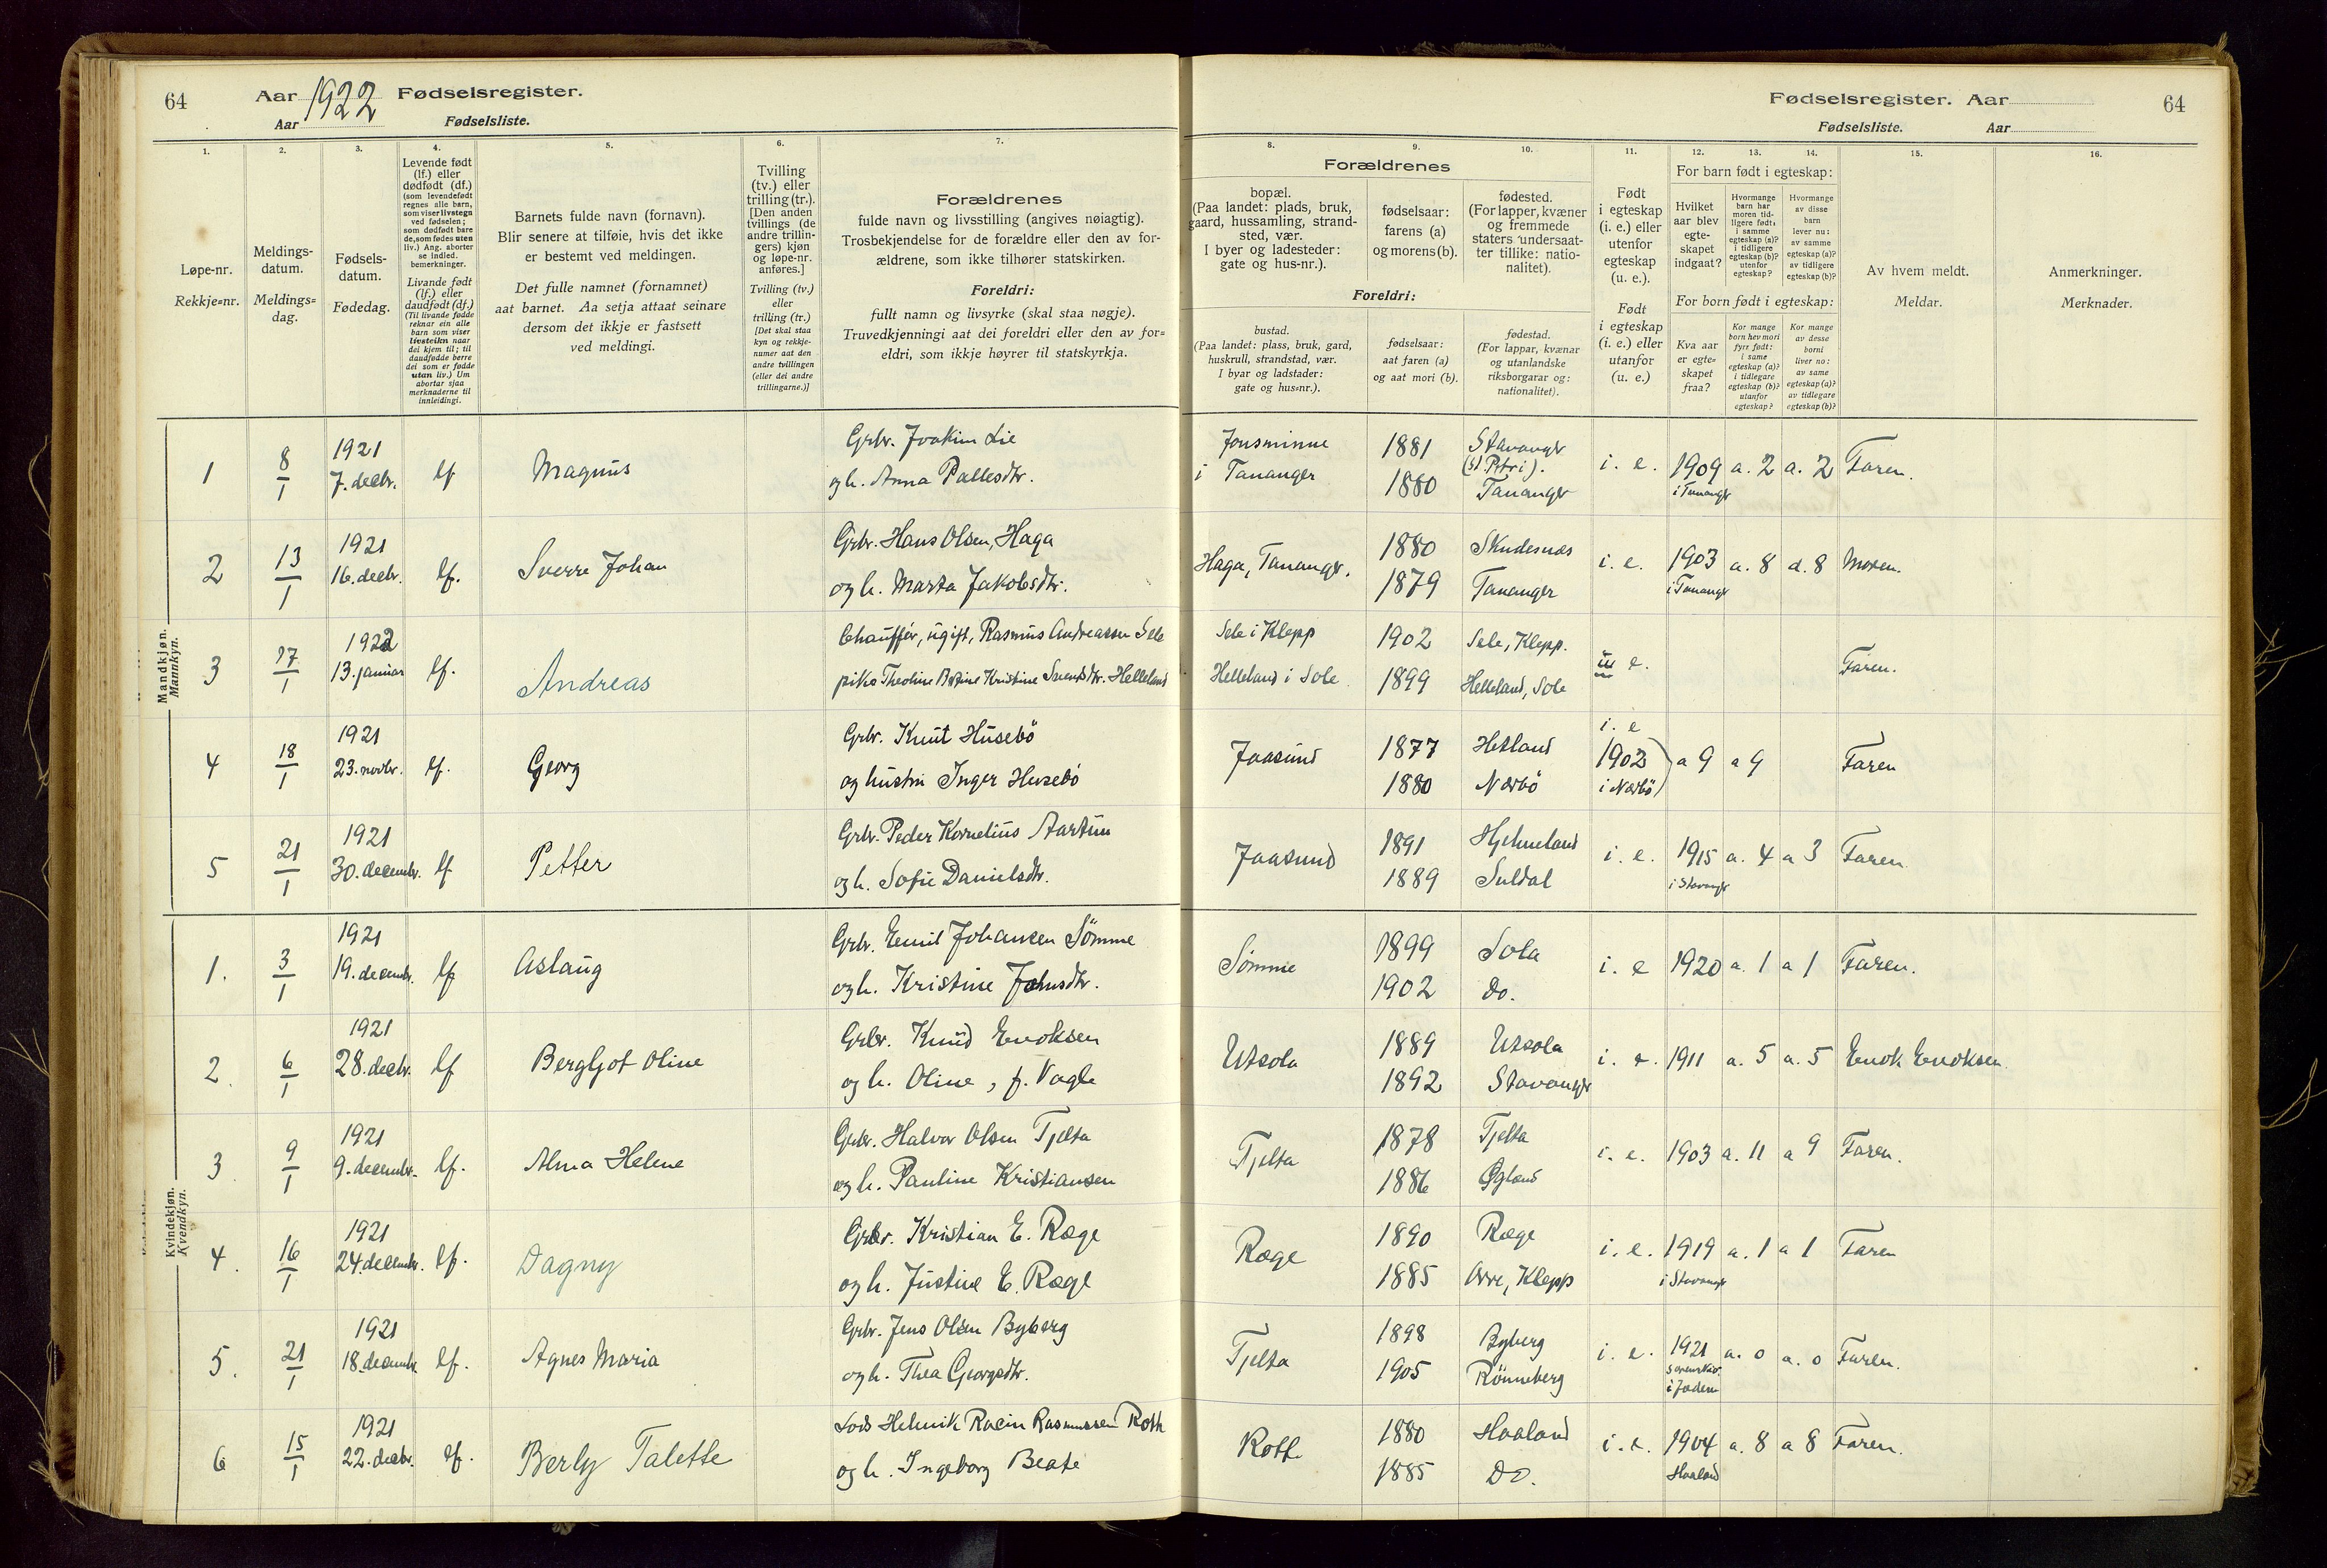 64
Aar 1922 Fødselsregister.
Aar Fødselsliste.
Fødselsregister. Aar
64
Fødselsliste. Aar
1.
Løpe-nr.
Rekkje=nr.
2.
Meldings-
datum.
Meldings=
dag.
3.
Fødsels-
datum.
Fødedag.
4.
Levende født
(lf.) eller
dødfødt (df.)
(som levendefødt
regnes alle barn,
som viser livstegn
ved fødselen;
som dødfødt bare
de, som fødes uten
liv.) Ang. aborter
se indled.
bemerkninger.
Livande født
(lf.) eller
daudfødt (df.)
(Til livande fødde
reknar ein alle
barn som viser
livsteikn naar
dei kjem til; til
daudfødde berre
dei som er fødde
utan liv.) Um
abortar sjaa
merknaderne til
innleidingi.
5.
Barnets fulde navn (fornavn).
Blir senere at tilføie, hvis det ikke
er bestemt ved meldingen.
Det fulle namnet (fornamnet)
aat barnet. Aa setja attaat seinare
dersom det ikkje er fastsett
ved meldingi.
6.
Tvilling
(tv.) eller
trilling (tr.).
[Den anden
tvillings (de
andre trillin-
gers) kjøn
og løpe-nr.
anføres.]
Tvilling (tv.)
eller
trilling (tr.)
[Det skal staa
kyn og rekkje-
numer aat den
andre tvillingen
(eller dei andre
trillingarne.)]
7.
Forældrenes
fulde navn og livsstilling (angives nøiagtig).
Trosbekjendelse for de forældre eller den av for-
ældrene, som ikke tilhører statskirken.
Foreldri:
fullt namn og livsyrke (skal staa nøgje).
Truvedkjenningi aat dei foreldri eller den av for=
eldri, som ikkje høyrer til statskyrkja.
Forældrenes
8.
bopæl.
(Paa landet: plads, bruk,
gaard, hussamling, strand-
sted, vær.
I byer og ladesteder:
gate og hus-nr.).
9.
fødselsaar:
farens (a)
og morens (b).
10.
fødested.
(For lapper, kvæner
og fremmede
staters undersaat-
ter tillike: natio-
nalitet).
Foreldri:
bustad.
(Paa landet: plass, bruk, gard,
huskrull, strandstad, vær.
I byar og ladstader:
gate og hus=nr.).
fødselsaar:
aat faren (a)
og aat mori (b).
fødestad.
(For lappar, kvænar
og utanlandske
riksborgarar og:
nationalitet).
11.
Født
i egteskap
(i. e.) eller
utenfor
egteskap
(u. e.).
Født
i egteskap
(i. e.) eller
utanfor
(u. e.)
For barn født i egteskap:
12.
Hvilket
aar blev
egte-
skapet
indgaat?
13.
Hvormange
barn har
moren tid-
ligere født:
i samme
egteskap (a)?
i tidligere
egteskap (b)?
utenfor
egteskap?
14.
Hvormange
av disse
barn
lever nu:
av samme
egteskap (a)?
av tidligere
egteskap (b)?
For born født i egteskap:
Kva aar
er egte=
skapet
fraa?
Kor mange
born hev mori
fyrr født:
i same
egteskap (a)?
i tidlegare
egteskap (b)?
utanfor
egteskap?
Kor mange
av desse
borni
liver no:
av same
egteskap (a)?
av tidlegare
egteskap (b)?
15.
Av hvem meldt.
Meldar.
16.
Anmerkninger.
Merknader.
Mandkjøn.
Mannkyn.
1 8/1 1921 7. decbr. lf Magnus
Grbr. Joakim Lie
og h. Anna Pallesdtr.
Jonsminne i Tananger 1881 1880 Stavanger (St. Petri). Tananger i. e. 1909 i Tananger a. 2 a. 2 Faren.
2 13/1 1921 16. decbr. lf. Sverre Johan
Grbr. Hans Olsen, Haga
og h. Marta Jakobsdtr.
Haga, Tananger. 1880 1879 Skudesnes Tananger i. e. 1903 i Tananger a. 8 d. 8 Moren.
3 17/1 1922 13. januar lf. Andreas
Chauffør, ugift, Rasmus Andreassen Sele
pike Theoline Bertine Kristine Svendsdtr. Helleland
Sele i Klepp Helleland i Sole 1902 1899 Sele, Klepp. Helleland, Sole u e. Faren.
4 18/1 1921 23. novbr. lf. Georg
Grbr. Knut Husebö
og hustru Inger Husebö
Jaasund 1877 1880 Hetland Nærbö i. e 1902 i Nærbö) a 9 a 9 Faren
5 21/1 1921 30. decembr. lf Petter
Grbr. Peder Kornelius Aartun
og h. Sofie Danielsdtr.
Jaasund 1891 1889 Hjelmeland Suldal i. e. 1915 i Stavanger a. 4 a 3 Faren.
Kvindekjøn.
Kvendkyn.
1. 3/1 1921 19. decembr. lf Aslaug
Grbr. Emil Johansen Sömme
og h. Kristine Johnsdtr.
Sömme 1899 1902 Sola Do. i. e 1920 a. 1 a 1 Faren.
2. 6/1 1921 28. decbr. lf Bergljot Oline
Grbr. Knud Enoksen
og h. Oline, f. Vagle
Utsola 1889 1892 Utsola Stavanger i. e. 1911 a. 5 a. 5 Enok Enoksen
3 9/1 1921 9. decembr. lf. Alma Helene
Grbr. Halvor Olsen Tjelta
og h. Pauline Kristiansen
Tjelta 1878 1886 Tjelta Øgland i. e. 1903 a. 11 a 9 Faren.
4. 16/1 1921 24. decembr. lf. Dagny
Grbr. Kristian E. Ræge
og h. Justine E. Ræge
Ræge 1890 1885 Ræge Orre, Klepp i. e. 1919 i Stavanger a. 1 a 1 Faren
5. 21/1 1921 18. decembr lf. Agnes Maria
Grbr. Jens Olsen Byberg
og h. Thea Georgsdtr.
Tjelta 1898 1905 Byberg Rönneberg i. e. 1921 i Jæderen a. 0 a. 0 Faren.
6 15/1 1921 22. decbr. lf. Berly Talette
Lods Helmik Racin Rasmussen Rott
og h. Ingeborg Beate
Rott 1880 1885 Haaland Do. i. e. 1904 Haaland a. 8 a 8 Faren.